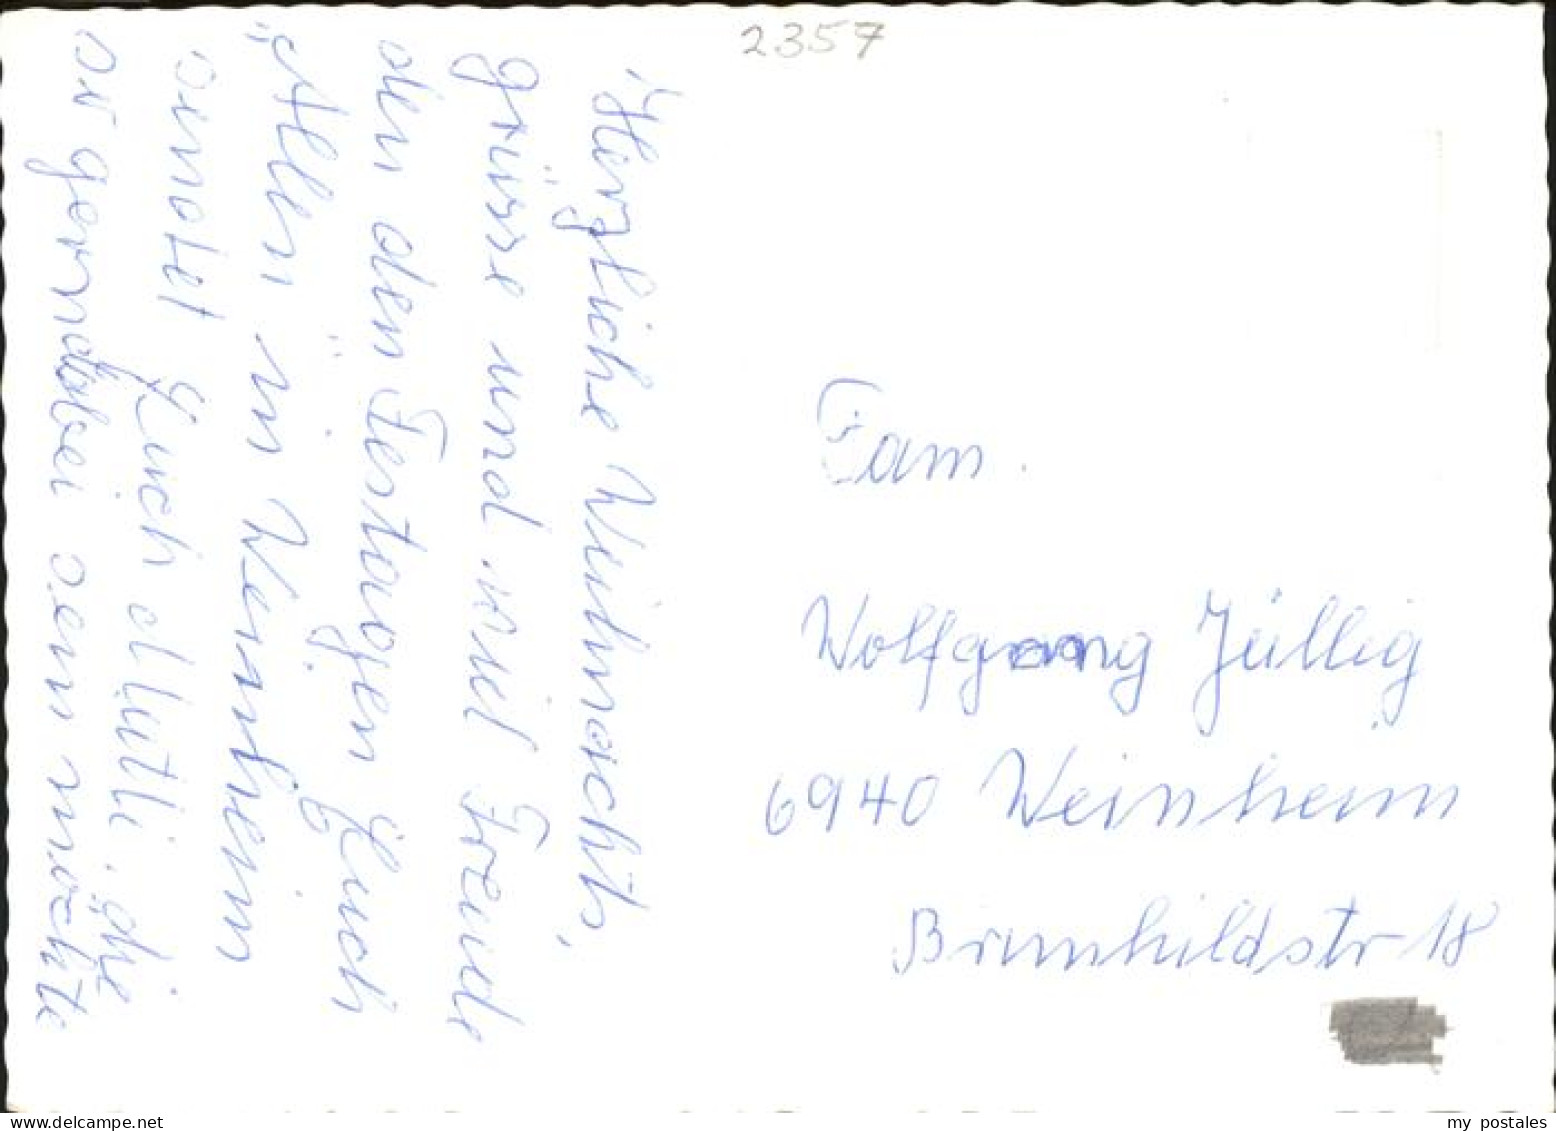 2357
Herzliche Weihnachts,
grüsse und viel Freude
den den Festtagen Euch
Allen in Weinheim
sendet Euch Mutti. die
so gern dabei sein möchte
Fam.
Wolfgang Jüllig
6940 Weinheim
Brunhildstr 18
www.delcampe.net
my_postales